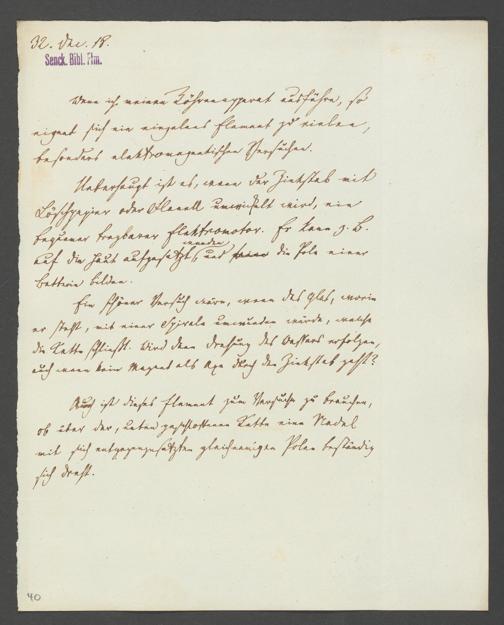 32. Dec. 18.
Senck. Bibl. Ffm.
Wenn ich meinen Röhrenapparat ausführe, so
eignet sich ein einzelnes Element zu vielen,
besonders elektromagnetischen Versuchen.
Ueberhaupt ist es, wenn der Zinkstab mit
Löschpapier oder Flanell umwickelt wird, ein
bequemer tragbarer Elektromotor. Er kann z. B.
auf die Haut aufgesetzt werden, und die Pole einer
Batterie bilden.
Ein schöner Versuch wäre, wenn das Glas, worin
er steht, mit einer Spirale umwunden würde, welche
die Kette schließt. Wird dann Drehung des Wassers erfolgen,
auch wenn kein Magnet als Axe durch den Zinkstab geht?
Auch ist dieses Element zum Versuche zu brauchen,
ob über der, unten geschlossenen Kette eine Nadel
mit sich entgegengesetzten gleichnamigen Polen beständig
sich dreht.
40